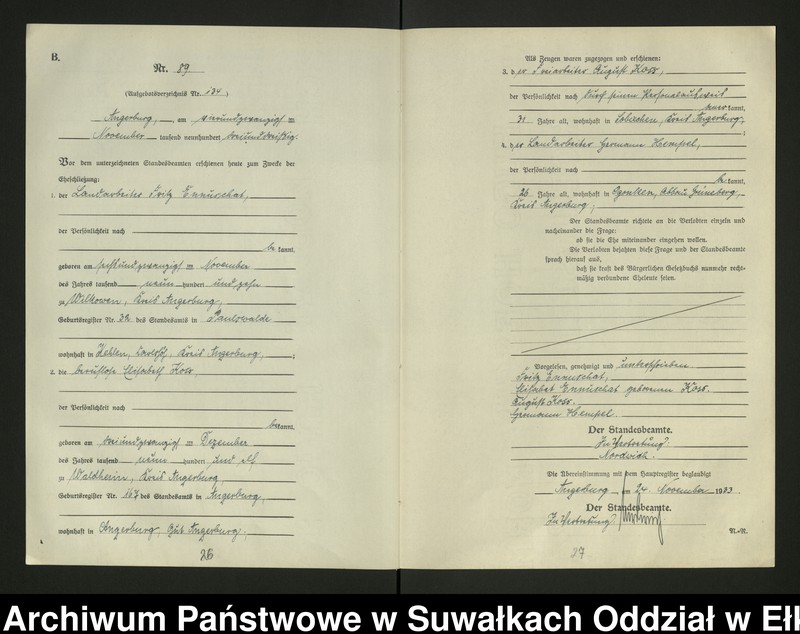 B.
Nr. 89
(Aufgebotsverzeichnis Nr. 134)
Angerburg, am vierundzwanzigsten
November tausend neunhundert dreiunddreißig.
Vor dem unterzeichneten Standesbeamten erschienen heute zum Zwecke der
Eheschließung:
1. der Landarbeiter Fritz Ennuschat,
der Persönlichkeit nach
be kannt,
geboren am sechsundzwanzigsten November
des Jahres tausend neun hundert und zehn
zu Wilkowen, Kreis Angerburg,
Geburtsregister Nr. 32 des Standesamts in Paulswalde
wohnhaft in Kehlen, Kreis Angerburg, ;
2. die berufslose Elisabeth Koss,
der Persönlichkeit nach
be kannt,
geboren am dreiundzwanzigsten Dezember
des Jahres tausend neun hundert und elf
zu Waldheim, Kreis Angerburg,
Geburtsregister Nr. 187 des Standesamts in Angerburg,
wohnhaft in Angerburg, Gut Angerburg,
26
Als Zeugen waren zugezogen und erschienen:
3. der Freiarbeiter August Koss,
der Persönlichkeit nach durch seinen Personalausweis
kannt,
31 Jahre alt, wohnhaft in Kreis Angerburg, ;
4. der Landarbeiter Hermann Hempel,
der Persönlichkeit nach
be kannt,
26 Jahre alt, wohnhaft in Grüneberg,
Kreis Angerburg,
Der Standesbeamte richtete an die Verlobten einzeln und
nacheinander die Frage:
ob sie die Ehe miteinander eingehen wollen.
Die Verlobten bejahten diese Frage und der Standesbeamte
sprach hierauf aus,
daß sie kraft des Bürgerlichen Gesetzbuchs nunmehr recht-
mäßig verbundene Eheleute seien.
Vorgelesen, genehmigt und unterschrieben
Fritz Ennuschat,
Elisabet Ennuschat geborenen Koss.
August Koss.
Hermann Hempel.
Der Standesbeamte.
In Vertretung:
Nordwich.
Die Übereinstimmung mit dem Hauptregister beglaubigt
Angerburg, am 24. November 1933.
Der Standesbeamte.
In Vertretung:
N.-R.
27
Archiwum Państwowe w Suwałkach Oddział w Ełk